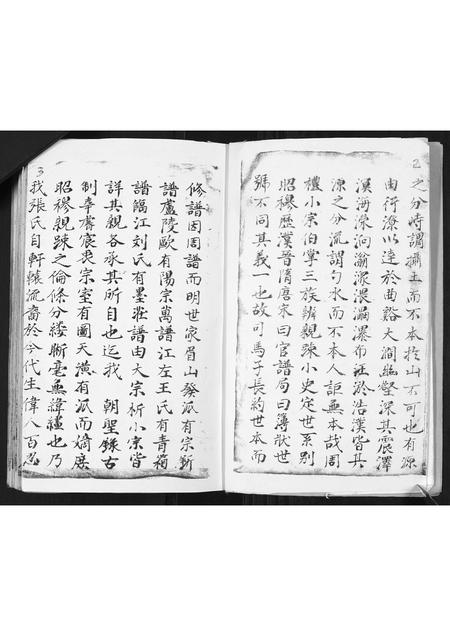 2
之分時謂攝土而不本於山不可也有源
由行潦以達於曲谿大澗幽壑深其震澤
溟海深洞瀹濛濃瀾瀑布社於浩漢皆其
涑之分流謂勺水而不本人詎無本哉周
禮小宗伯掌三族辨親踈小史定世系别
昭穆歷漢晉隋唐宋曰官譜局曰簿狀世
號不同其義一也故司馬子長約世本而
3
修譜因周譜而明世家眉山發派有宗斯
譜盧陵歐有陽宗萬譜江左王氏有青箱
譜臨江刘氏有墨莊譜由大宗析小宗皆
詳其親各承其所自也迄我 朝聖錄古
制孝膺宸衷宗室有圖天潢有派而嫡庶
昭穆親踈之倫條分縷斷毫無緯繣也乃
我張氏自軒轅流裔於今代生偉人百氏